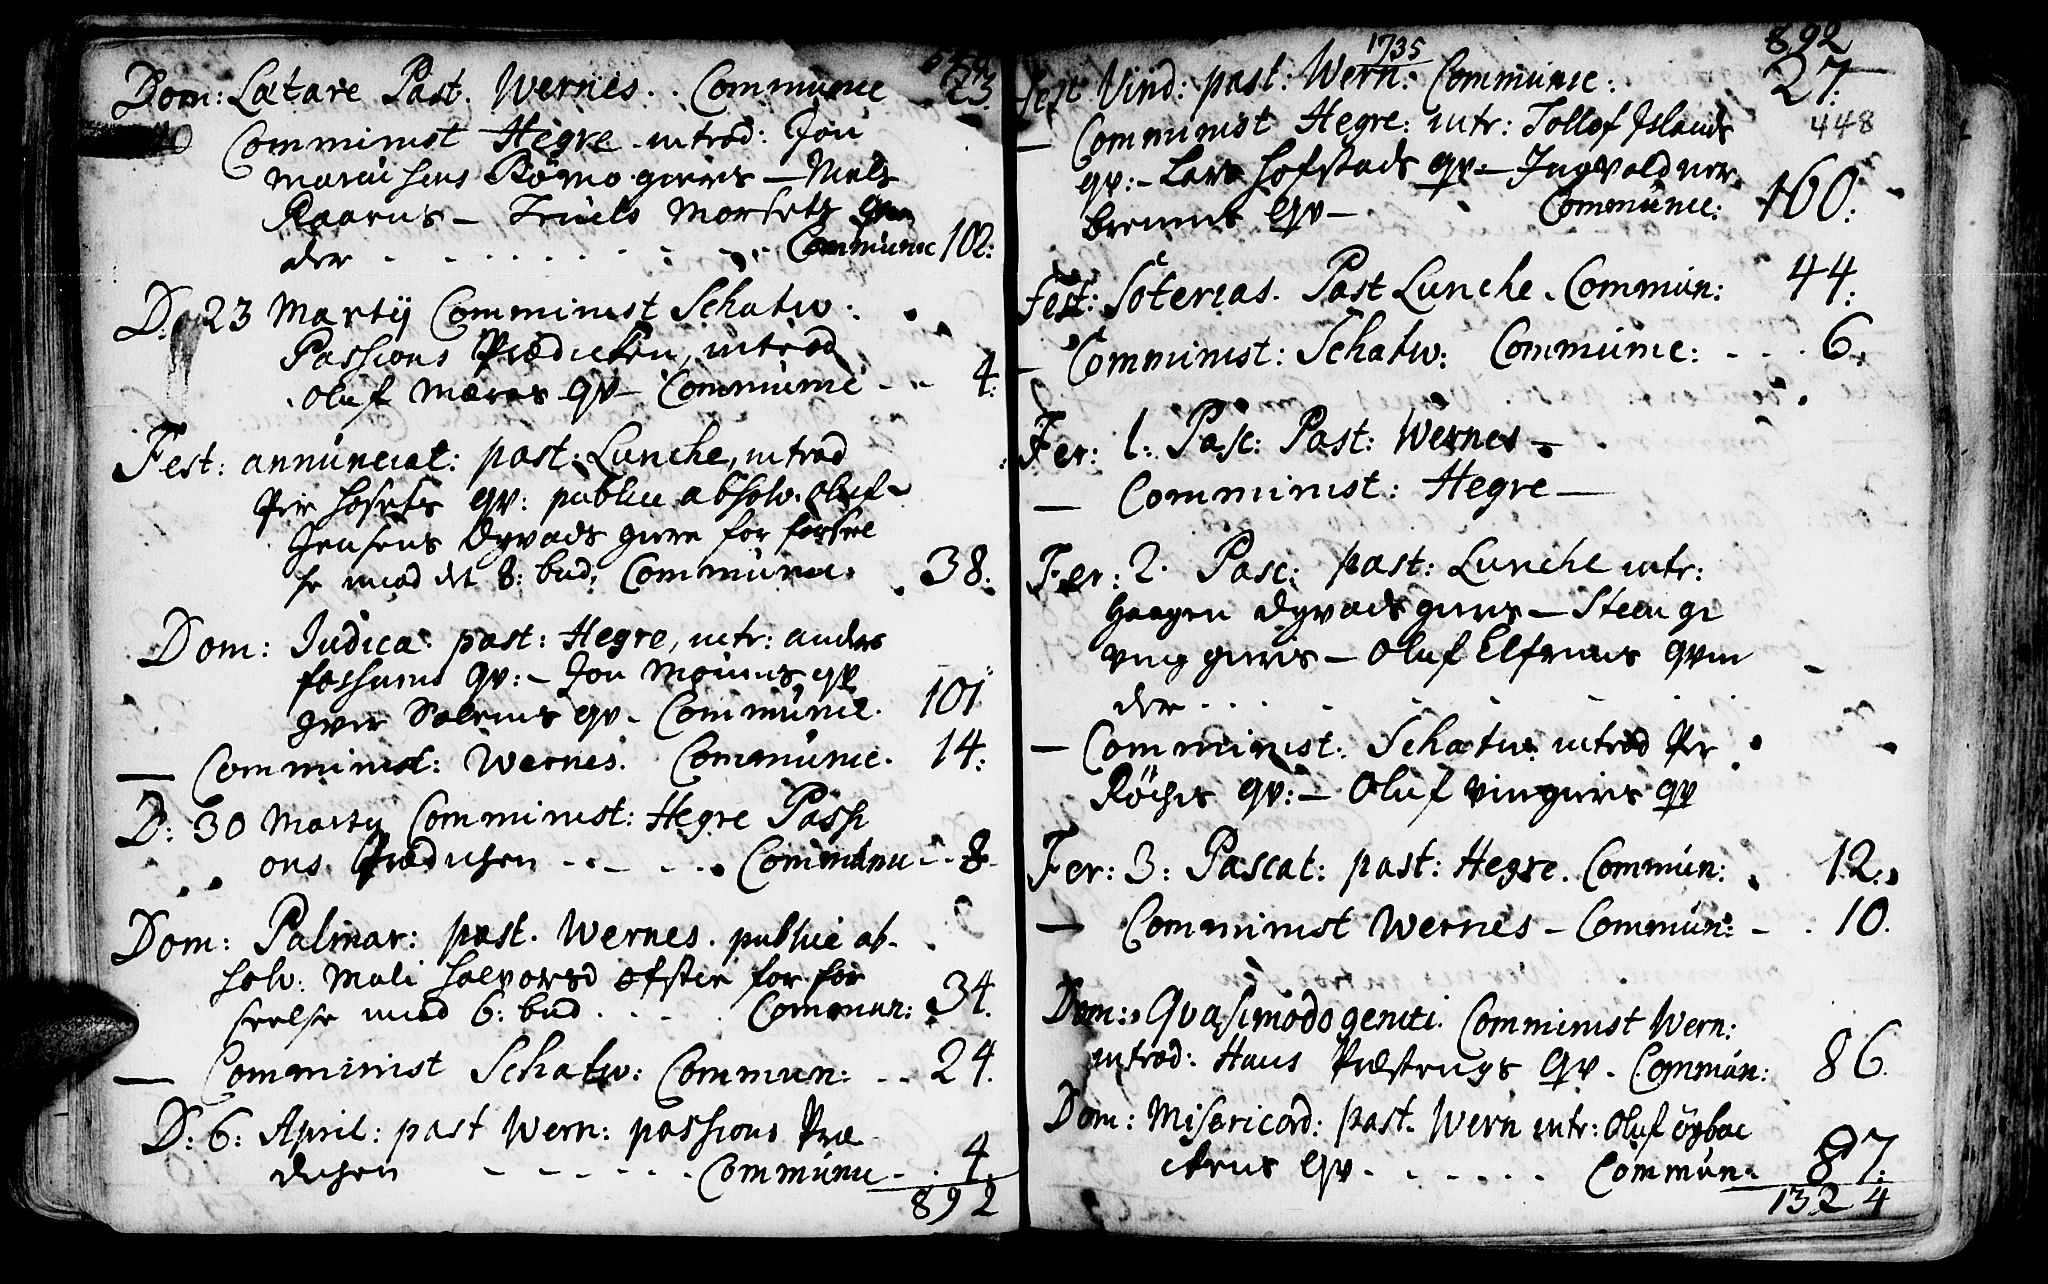 Dom: Lætare Past. Wernes. . Communic 23.
Comminist Hegre introd: Jon
Raarus — Truels Morsets qvin
der . . . . . . . . . Communic 102:
D: 23 Martij Comminist Schatw:
Passions Prædicken, introd
Oluf Mæraas qv — Communic - - 4:
Fest: annunciat: past: Lunche, introd
Per Hofsets qv: publicé absolv. Oluf
Jensens Dyvads giren for forseel
se mod det 8: bud; Communic. . 38:
Dom: Judica: past: Hegre, intr: anders
fossums qv: — Jon Moiums qv
qv - Communic. 101
— Comminist: Wernes. Communic. 14:
D: 30 Marty Comminist: Hegre Passi
ons Prædichen . . - - . . Communic - - 8-
Dom: Palmar: past. Wernes. publicé ab-
solv: Mali Halvorsd øfstie for for
seelse mod 6: bud . . . . Commun: 34.
— Comminist Schatw: Commun: . . 24.
D: 6: April: past Wern: passions Præ
dichen - - - - - - Communic - . 4.
892
1735
892
fest Vird: past: Wern: Communic: 27:
— Comminist Hegre: intr: Tollof Jslands 448
qv: — Lars Hofstads qv — Ingvald nor
brennes qv — Communic: 160:
fest: Soterias. Past Lunche. Commun: 44:
— Comminist: Schatw: Communic: - . . 6.
Fer: 1: Pasc: Past: Wernes —
— Comminist: Hegre —
Fer: 2. Pasc: past: Lunche intr:
Haagen Dyvads giires — Steen gi
ving giires — Oluf Elfraas qvin
der . . . .
— Comminist: Schatw: introd Per
Röches qv: — Oluf qv
Fer: 3: Pascat: past: Hegre. Commun: . 12:
— Comminist Wernes — Commun: - . 10.
Dom: Qvasimodogeniti. Comminist Wern:
introd: Hans Præstrugs qv. Commun: 86.
Dom: Misericord: past. Wern intr: Oluf öybac
kens qv - . . . . . Commun. 87:
1324